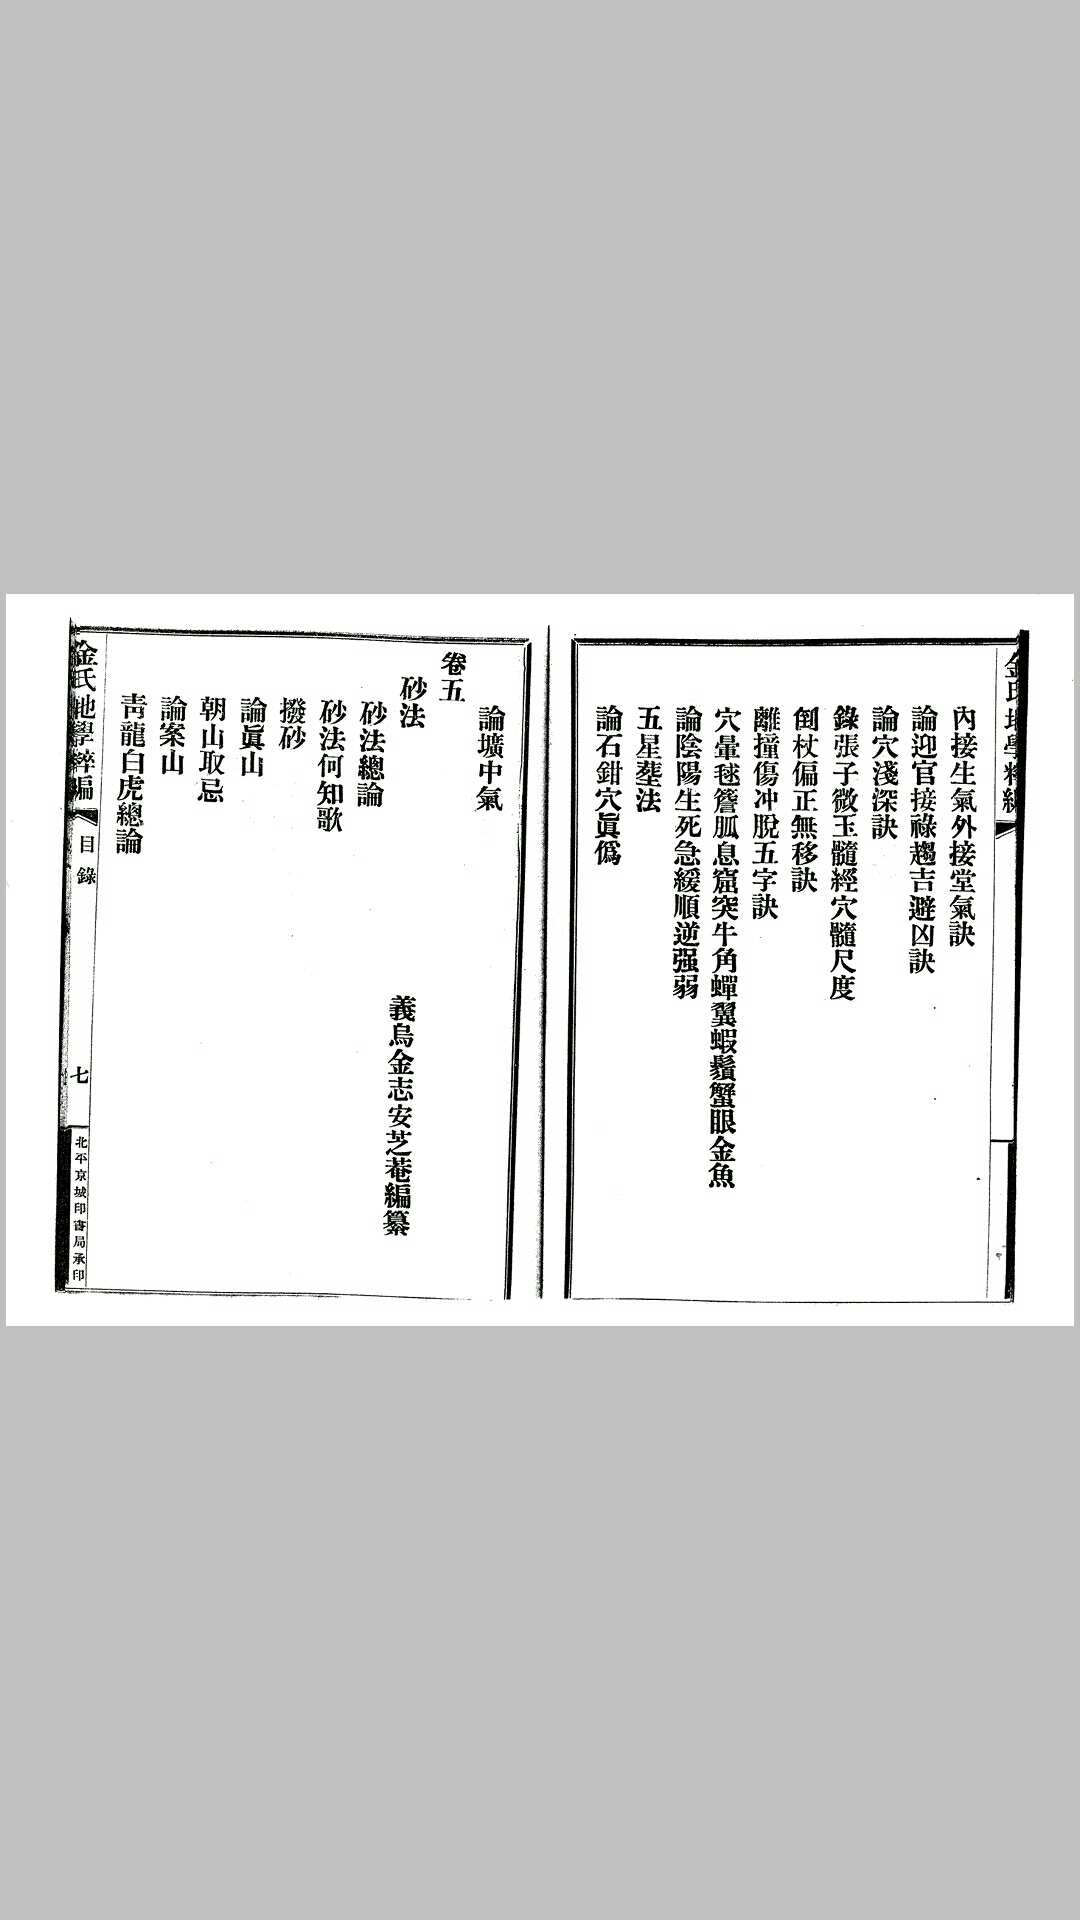 金氏地學粹編
內接生氣外接堂氣訣
論迎官接祿趨吉避凶訣
論穴淺深訣
錄張子微玉髓經穴髓尺度
倒杖偏正無移訣
離撞傷冲脫五字訣
穴暈毬簷胍息窟突牛角蟬翼蝦鬚蟹眼金魚
論陰陽生死急緩順逆强弱
五星塟法
論石鉗穴眞僞
論壙中氣
卷五
砂法
義烏金志安芝菴編纂
砂法總論
砂法何知歌
撥砂
論眞山
朝山取忌
論案山
靑龍白虎總論
金氏地學粹編
目錄
七
北平京城印書局承印